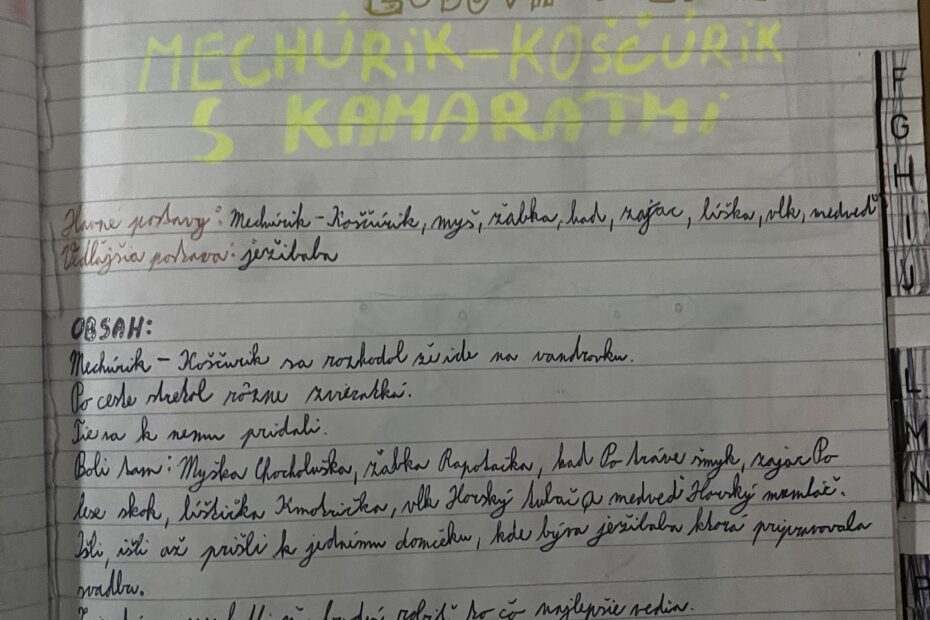 MECHÚRIK-KOŠČÚRIK
S KAMARATMI
Hlavné postavy: Mechúrik-Koščúrik, myš, žabka, had, zajac, líška, vlk, medveď
Vedľajšia postava: ježibaba
OBSAH:
Mechúrik - Koščúrik sa rozhodol že ide na vandrovku.
Po ceste stretol rôzne zvieratká.
Tie sa k nemu pridali.
Boli tam: Myška Chocholuška, žabka Rapotačka, had Po tráve šmyk, zajac Po
lese skok, líštička Kmotrička, vlk Horský tulač a medveď Horský mumláč.
Išli, išli až prišli k jednému domčeku, kde býva ježibaba ktorá pripravovala
svadbu.
robiť to čo najlepšie vedia.
F
G
H
I
J
L
M
N